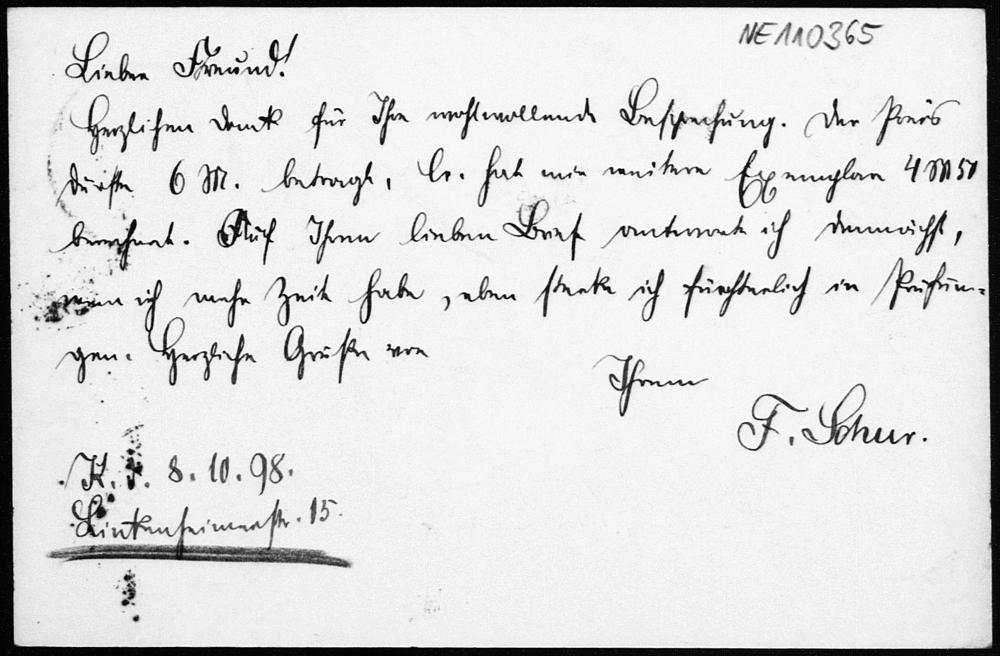 NE110365
Lieber Freund!
Herzlichen Dank für Ihre wohlwollende Besprechung. Der Preis
dürfte 6 M. betragen, hat mir weitere Exemplare 4 M 50
berechnet. Auf Ihren lieben Brief antworte ich demnächst,
wenn ich mehr Zeit habe, eben stecke ich fürchterlich in Prüfun-
gen. Herzliche Grüße von
Ihrem
F. Schur.
K. d. 8. 10. 98.
Linkenheimerstr. 15.